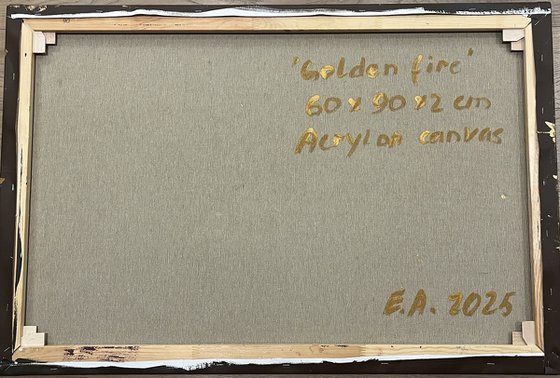 'Golden fire'
60 x 90 x 2 cm
Acryl on canvas
E.A. 2025